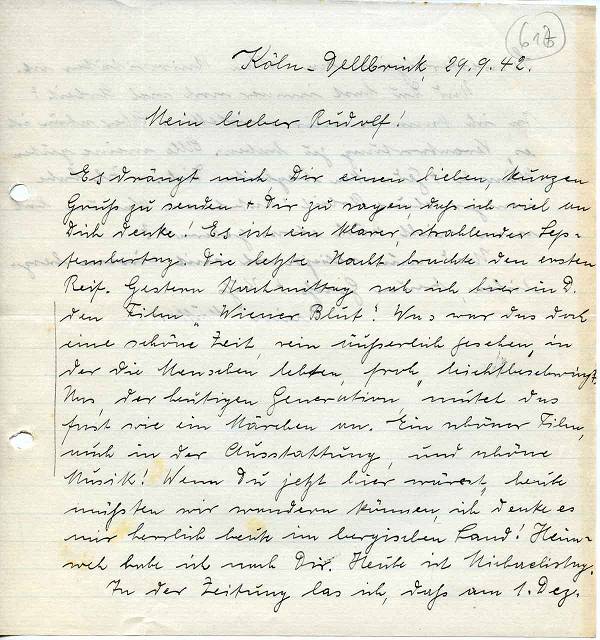 617
Köln-Dellbrück, 29.9.42.
Mein lieber Rudolf!
Es drängt mich, Dir einen lieben, kurzen
Gruß zu senden + Dir zu sagen, daß ich viel an
Dich denke! Es ist ein klarer, strahlender Sep-
tembertag. Die letzte Nacht brachte den ersten
Reif. Gestern Nachmittag sah ich hier in D.
den Film „Wiener Blut“! Was war das doch
eine schöne Zeit, rein äußerlich gesehen, in
der die Menschen lebten, froh „leichtbeschwingt“.
Uns, der heutigen Generation, mutet das
fast wie ein Märchen an. Ein schöner Film,
auch in der Ausstattung, und schöne
Musik! Wenn Du jetzt hier wärest, heute
müßten wir wandern können, ich denke es
mir herrlich heute im bergischen Land! Heim-
weh habe ich nach Dir. Heute ist Michaelistag.
In der Zeitung las ich, daß am 1. Dez.